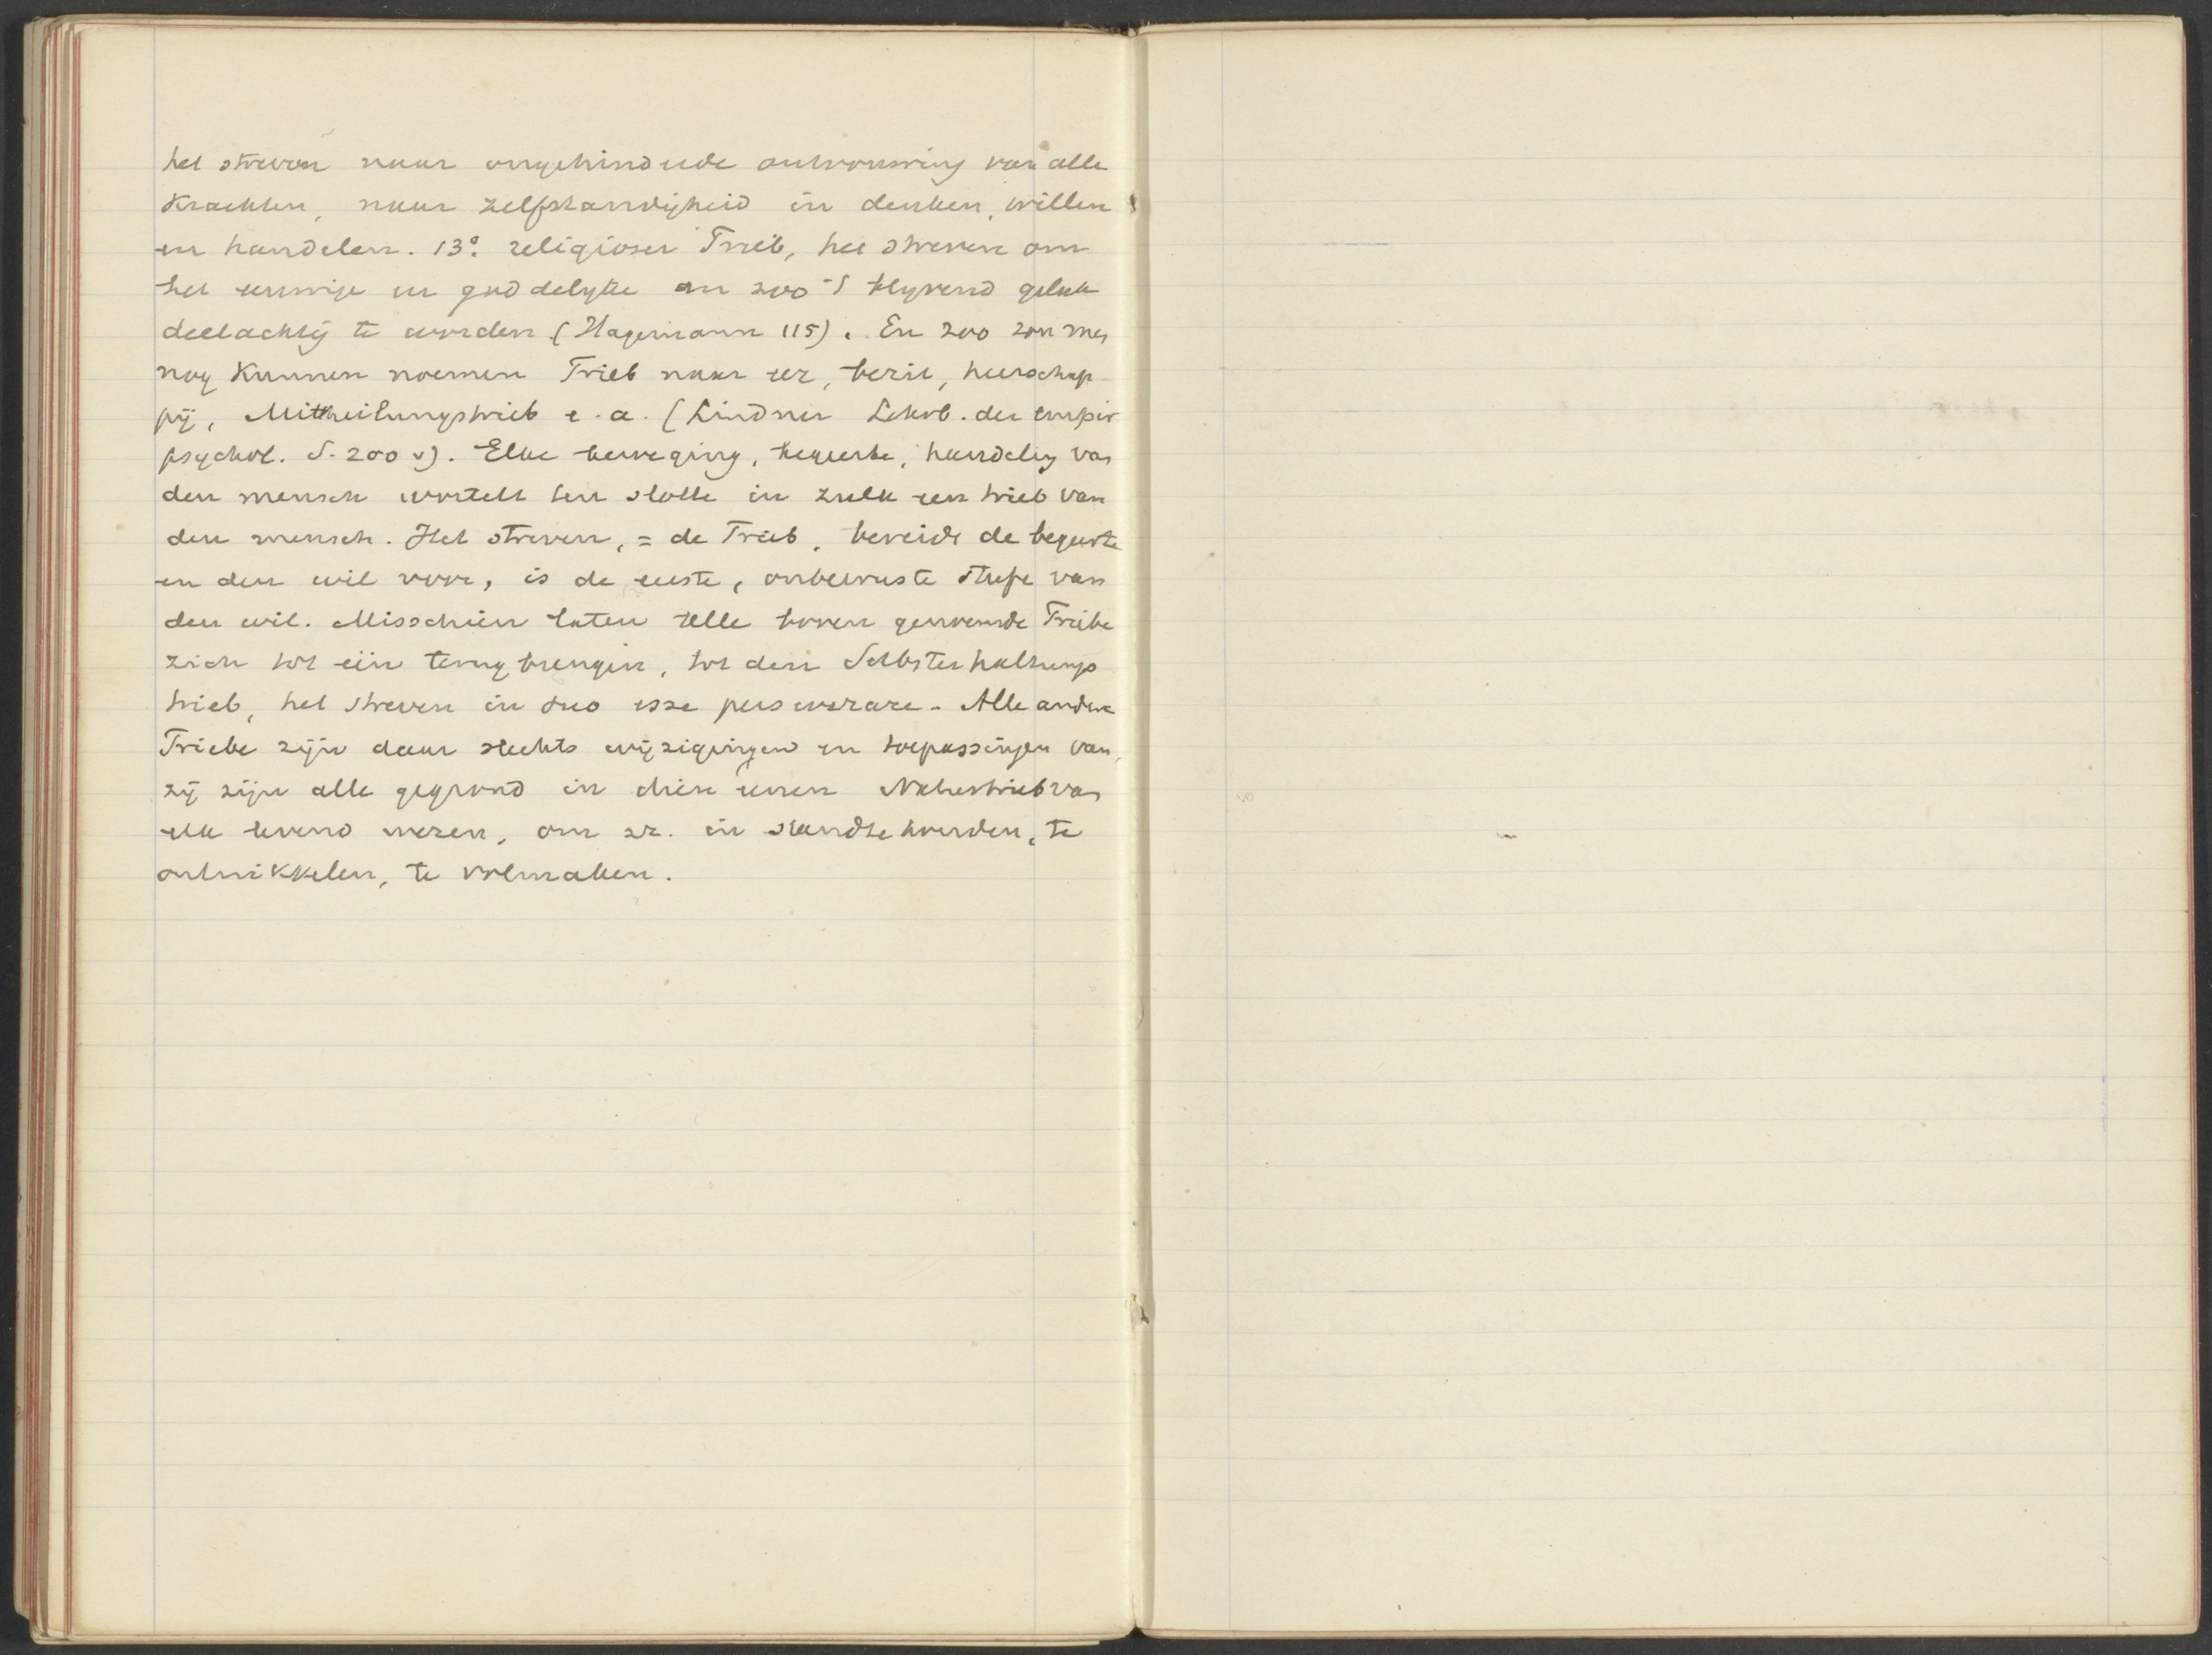 het streven naar ongehinderde ontvouwing van alle
krachten, naar zelfstandigheid in denken, willen
en handelen. 13°. religiöser Trieb, het streven om
het eeuwige en goddelyke en zoo 't blyvend geluk
deelachtig te worden (Hagemann 115). En zoo zou men
nog kunnen noemen Trieb naar eer, bezit, heerschap
pij, Mittheilungstrieb e.a. (Lindner Lehrb. der empir
psychol. S. 200 v). Elke beweging, begeerte, handeling van
den mensch wortelt ten slotte in zulk een trieb van
den mensch. Het streven, = de Trieb, bereidt de begeerte
en den wil voor, is de eerste, onbewuste Stufe van
den wil. Misschien laten alle boven genoemde Triebe
zich tot één terug brengen, tot den Selbsterhaltungs
trieb, het streven in suo esse perseverare. Alle andere
Triebe zijn daar slechts wijzigingen en toepassingen van,
zij zijn alle gegrond in dien eenen Naturtrieb van
elk levend wezen, om zr. in stand te houden, te
ontwikkelen, te volmaken.